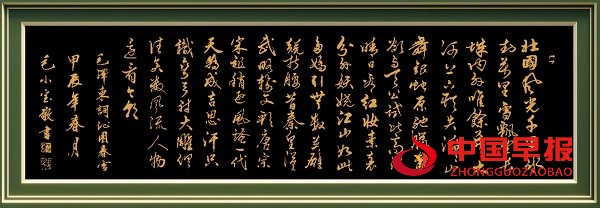 北國风光千里冰
封萬里雪飘望长
城内外唯餘莽莽大
河上下頓失滔滔山
舞銀蛇原驰蜡象
欲与天公試比高
晴日看红妝素裹
分外妖娆江山如此
多嬌引無數英雄
競折腰昔秦皇漢
武略输文彩唐宗
宋祖稍逊風骚一代
天骄成吉思汗只
識弯弓射大雕俱
往矣数風流人物
还看今朝
毛澤東詞沁园春雪
甲辰年春月
毛小宝敬書
中国早报
ZHONGGUOZAOBAO